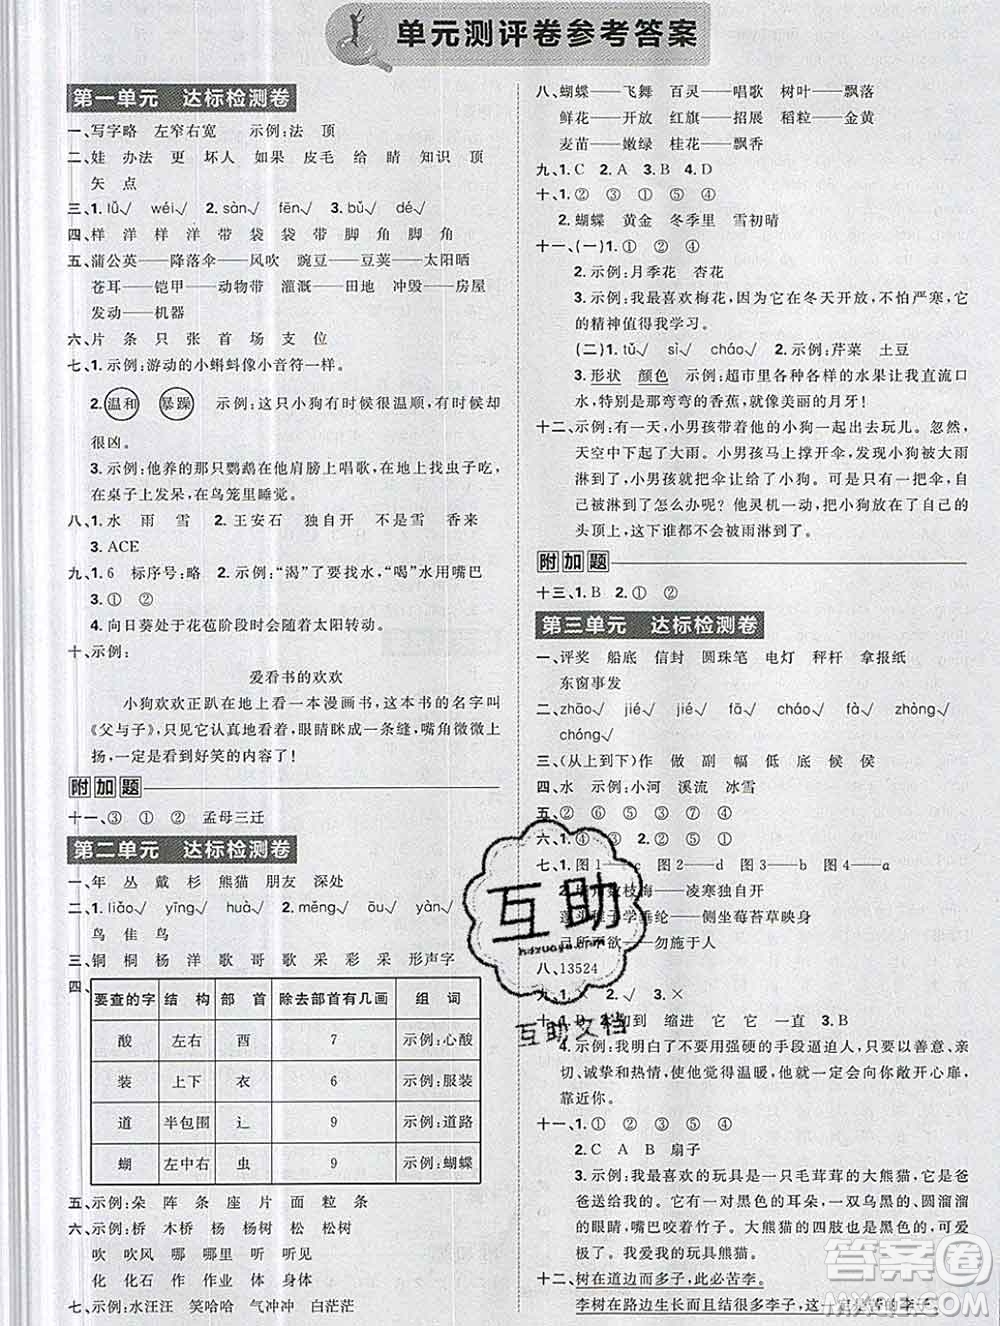 单元测评卷参考答案
第一单元 达标检测卷
一、写字略 左窄右宽 示例:法 顶
二、娃 办法 更 坏人 如果 皮毛 给 睛 知识 顶
矢 点
三、1. lǜ√ wéi√ 2. sàn√ fēn√ 3. bǔ√ dé√
四、样 洋 样 洋 带 袋 袋 带 脚 角 脚 角
五、蒲公英——降落伞——风吹 豌豆——豆荚——太阳晒
苍耳——铠甲——动物带 灌溉——田地 冲毁——房屋
发动——机器
六、片 条 只 张 首 场 支 位
七、1. 示例:游动的小蝌蚪像小音符一样。
2. 温和 暴躁 示例:这只小狗有时候很温顺,有时候却
很凶。
3. 示例:他养的那只鹦鹉在他肩膀上唱歌,在地上找虫子吃,
在桌子上发呆,在鸟笼里睡觉。
八、1. 水 雨 雪 2. 王安石 独自开 不是雪 香来
3. ACE
九、1. 6 标序号:略 2. 示例:“渴”了要找水,“喝”水用嘴巴
3. ① ②
4. 向日葵处于花苞阶段时会随着太阳转动。
十、示例:
爱看书的欢欢
小狗欢欢正趴在地上看一本漫画书,这本书的名字叫
《父与子》,只见它认真地看着书,眼睛眯成一条缝,嘴角微微上
扬,一定是看到好笑的内容啦!
附加题
十一、③ ① ② 孟母三迁
第二单元 达标检测卷
一、年 丛 戴 杉 熊猫 朋友 深处
二、1. liǎo√ yīng√ huà√ 2. měng√ ōu√ yàn√
鸟 隹 鸟
三、铜 桐 杨 洋 歌 哥 歌 采 彩 采 形声字
四、
要查的字 结 构 部 首 除去部首有几画 组 词
酸 左右 酉 7 示例:心酸
装 上下 衣 6 示例:服装
道 半包围 辶 9 示例:道路
蝴 左中右 虫 9 示例:蝴蝶
五、示例:朵 阵 条 座 片 面 粒 条
六、示例:桥 木桥 杨 杨树 松 松树
吹 吹风 哪 哪里 听 听见
化 化石 作 工作 体 身体
七、示例:水汪汪 笑哈哈 气冲冲 白茫茫
八、蝴蝶——飞舞 百灵——唱歌 树叶——飘落
鲜花——开放 红旗——招展 稻粒——金黄
麦苗——嫩绿 桂花——飘香
九、1. C 2. A 3. B 4. D
十、1. ② ③ ① ④
2. 蝴蝶 黄金 冬季里 雪初晴
十一、(一)1. ① ② ④
2. 示例:月季花 杏花
3. 示例:我最喜欢梅花,它在冬天开放,不怕严寒,它
的精神值得我学习。
(二)1. tǔ√ sì√ cháo√ 2. 示例:芹菜 土豆
3. 形状 颜色 示例:超市里各种各样的水果让我直流口
水,特别是那弯弯的香蕉,就像美丽的月牙!
十二、示例:有一天,小男孩带着他的小狗一起出去玩儿。忽然,
天空中下起了大雨。小男孩马上撑开伞,可是看到小狗被
淋湿了,小男孩就把伞让给了小狗。只有一把伞,自己被
淋到了怎么办呢?他灵机一动,把小狗放在了自己的
头顶上,这下谁都不会被雨淋到了。
附加题
十三、1. B 2. B
第三单元 达标检测卷
一、评奖 船底 信封 圆珠笔 电灯 秤杆 拿报纸
东窗事发
二、zhāo√ jié√ jié√ fā√ cháo√ fà√ zhòng√
chóng√
三、(从上到下)作 做 副 幅 低 底 候 侯
四、水 示例:小河 溪流 冰雪
五、② ⑥ ⑤ ⑧ ③ ⑦ ① ④
六、1. ④ ③ 2. ② ⑤ ①
七、1. 图1——c 图2——d 图3——b 图4——a
2. 墙角数枝梅——凌寒独自开
蓬头稚子学垂纶——侧坐莓苔草映身
己所不欲——勿施于人
八、13524
3. ×
缩进 它 它 一直 3. B
4. 示例:我明白了不要用强硬的手段逼迫人,只要以善意、亲
切、诚挚和热情,使他们觉得温暖,他们就一定会向你敞开心扉,
靠近你。
十一、1. ① ③ ② ⑤ ④
2. C A B 扇子
3. 示例:我最喜欢的玩具是一只毛茸茸的大熊猫,它是爸
爸送给我的。它身上有一对黑色的耳朵,一双乌黑的、圆溜溜
的眼睛,嘴巴咬着竹子。大熊猫的四肢也是黑色的,可爱
极了。我喜欢我的玩具熊猫。
十二、树在道边而多子,此必苦李。
李树在路边生长而且有很多李子,这一定是苦的李子。
互助
互助文档
答案圈